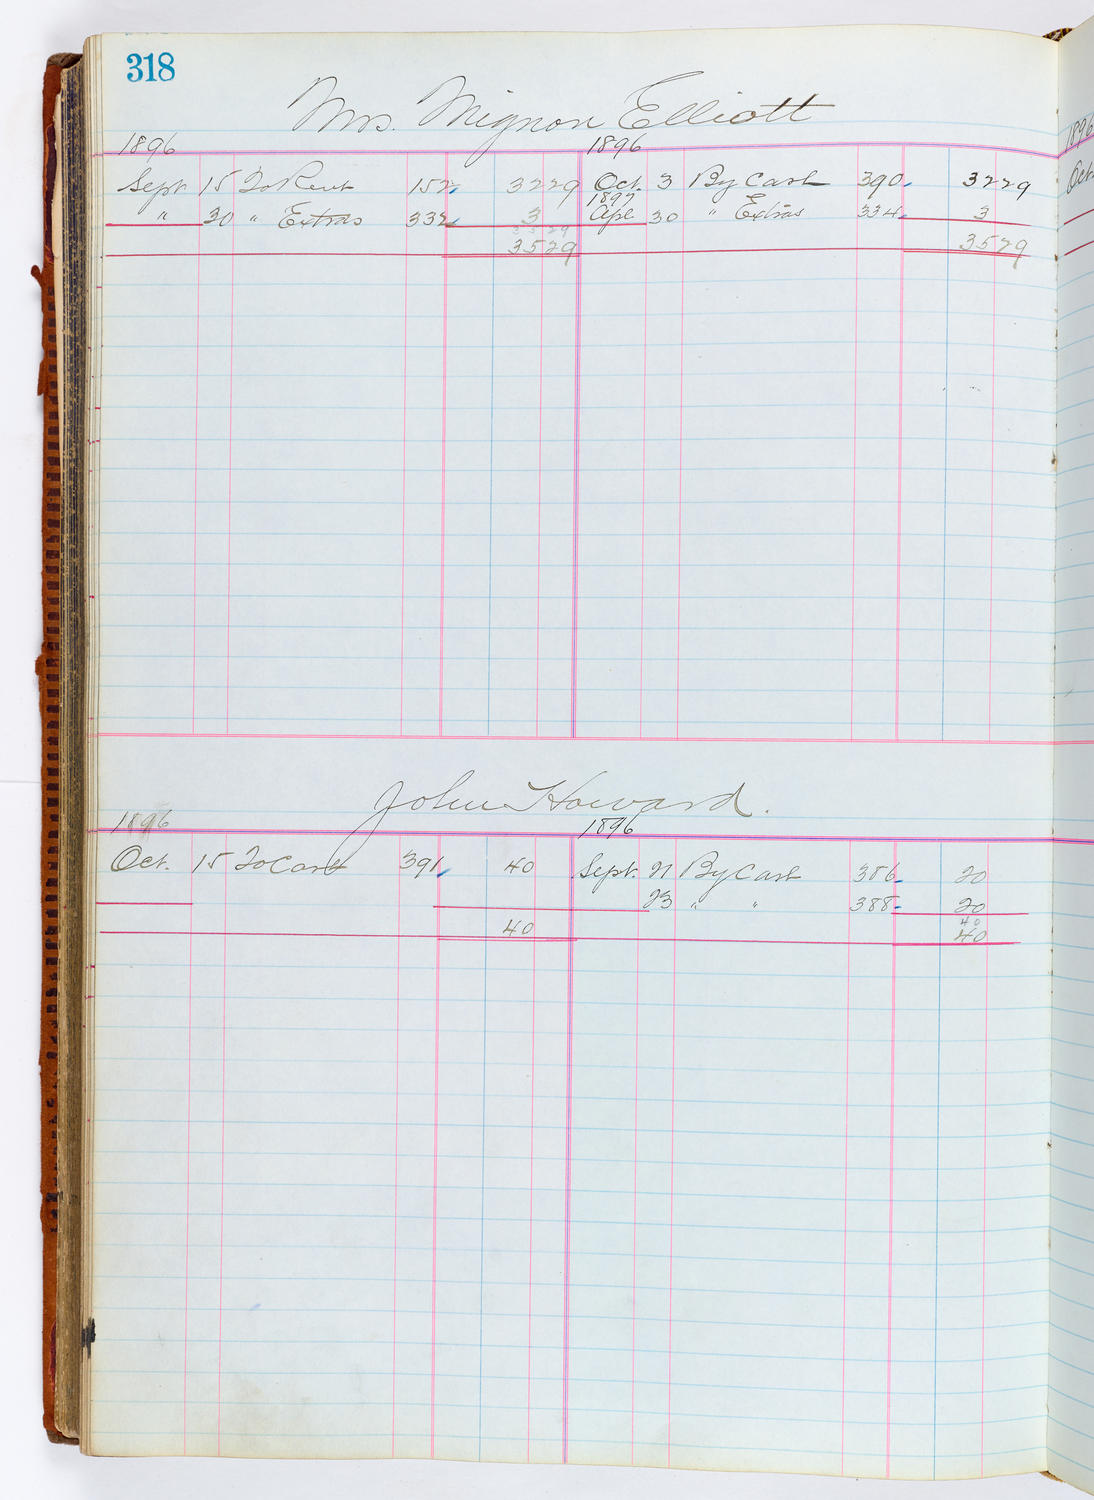 318
Mrs. Mignon Elliott
1896 1896
Sept 15 To Rent 152 32 29 Oct. 3 By Cash 390 32 29
1897
" 30 " Extras 332 3 Apl 30 " Extras 334 3
35 29
35 29 35 29
John Howard.
1896 1896
Oct. 15 To Cash 391 40 Sept. 21 By Cash 386 20
23 " " 388 20
40
40 40
1896
Oct.